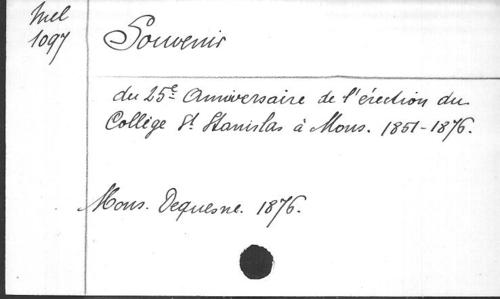 Mel
1097
Souvenir
du 25e Anniversaire de l'érection du
Collège St. Stanislas à Mons. 1851-1876.
Mons. Dequesne. 1876.